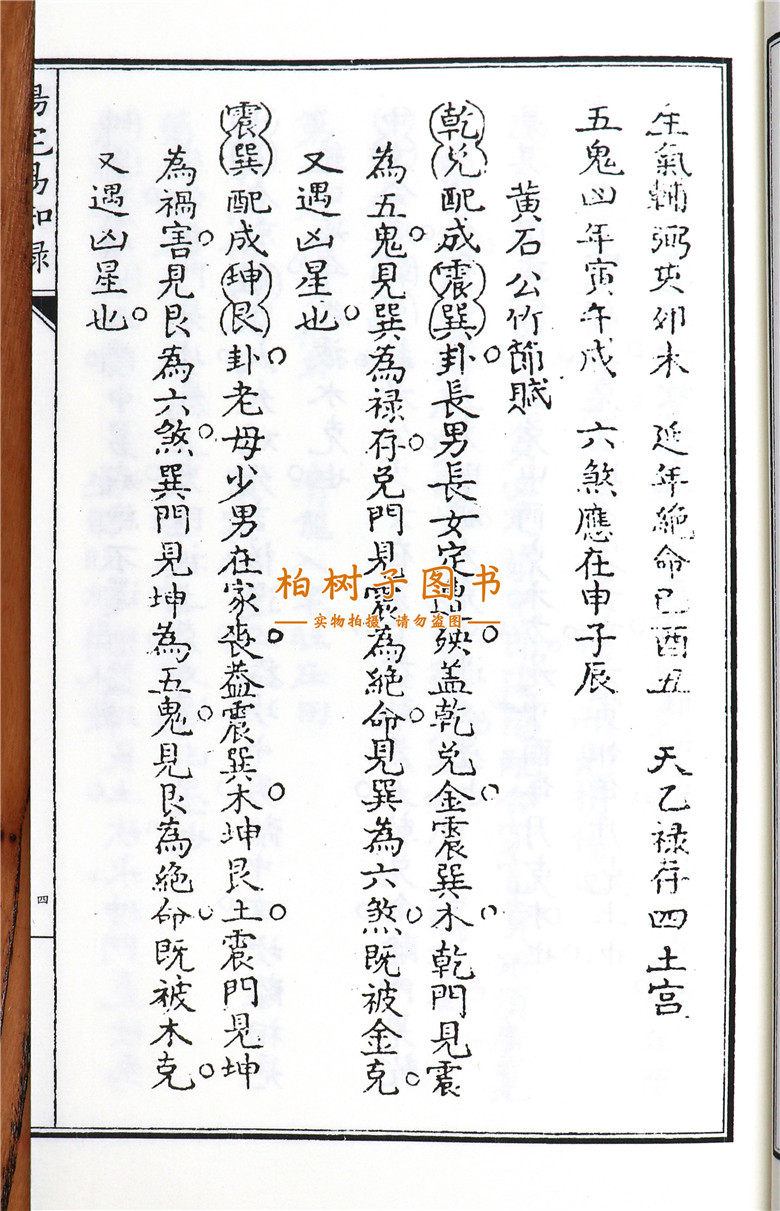 生氣輔弼亥卯未 延年絶命巳酉丑 天乙禄存四土宫
五鬼凶年寅午戌 六煞應在申子辰
黄石公竹節賦
乾兑配成震巽卦長男長女定 殃盖乾兑金震巽木乾門見震
為五鬼見巽為禄存兑門見震為絶命見巽為六煞既被金克
又遇凶星也
震巽配成坤艮卦老母少男在家丧葢震巽木坤艮土震門見坤
為禍害見艮為六煞巽門見坤為五鬼見艮為絶命既被木克
又遇凶星也
四
柏树子图书
实物拍摄 请勿盗图